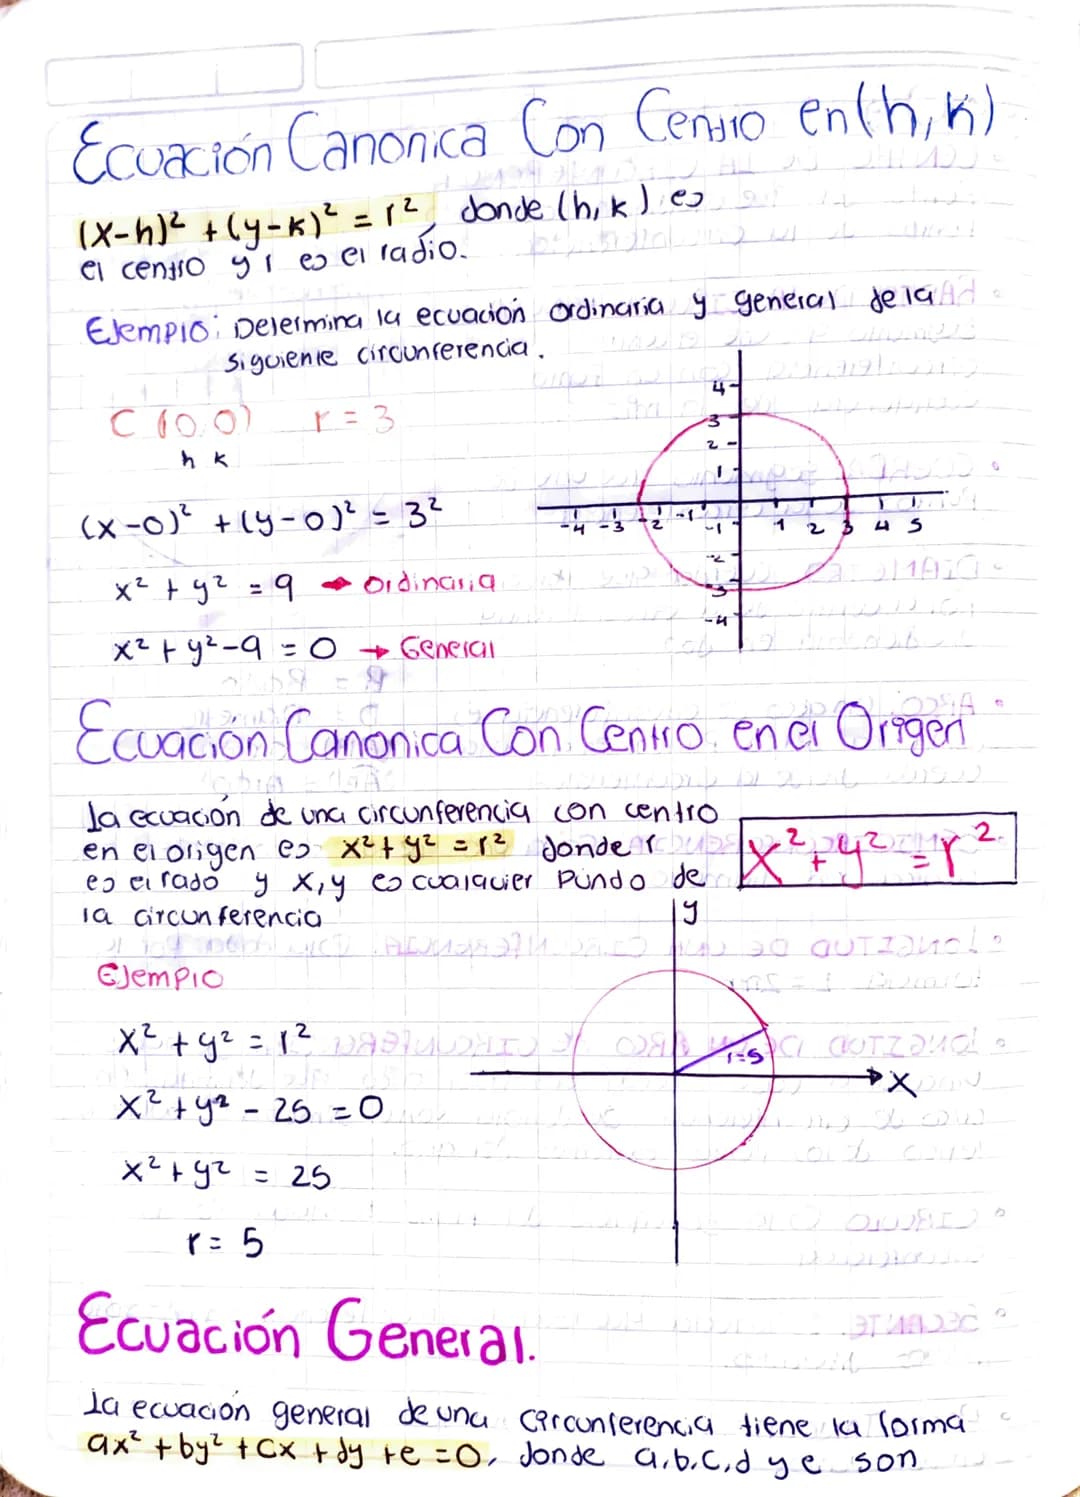 Ecuación Canonica Con Centro en (h, k)
(x-h)² + (y-k)² = r², donde (h, k) es
el centro y r es el radio.
Ejemplo: Determina la ecuación ordinaria y general de la
siguiente circunferencia.
C (0,0) r = 3
h k
(x-0)² + (y-0)² = 3²
x² + y² = 9 → Ordinaria
x² + y² - 9 = 0 → General
4
3
2
1
-4 -3 -2 -1 1 2 3 4 5
-1
-2
-3
-4
Ecuación Canonica Con Centro en el Origen
La ecuación de una circunferencia con centro
en el origen es x² + y² = r² donde r
es el rado y x, y es cualquier Pundo de
la circunferencia
x² + y² = r²
Ejemplo
x² + y² = r²
x² + y² - 25 = 0
x² + y² = 25
r = 5
y
r=5
x
Ecuación General.
La ecuación general de una circunferencia tiene la forma
ax² + by² + cx + dy + e = 0, donde a,b,c,d y e son